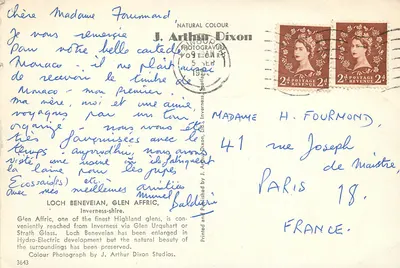 Chère Madame Fourmond
Je vous remercie
pour votre belle carte de
Monaco - il me plait
de recevoir le timbre de
Monaco - mon premier.
ma mère, moi et une amie,
voyageons par un tour
organizé - nous avons été
très favorisées avec le
temps - aujourd'hui, nous avons
visité une où ils fabriquent
la laine pour les jupes
Ecossaides) etc.
avec mes meilleures amitiés
Muriel Baldieri
LOCH BENEVEIAN, GLEN AFFRIC,
Inverness-shire.
Glen Affric, one of the finest Highland glens, is con-
veniently reached from Inverness via Glen Urquhart or
Strath Glass. Loch Beneveian has been enlarged in
Hydro-Electric development but the natural beauty of
the surroundings has been preserved.
Colour Photograph by J. Arthur Dixon Studios.
3643
NATURAL COLOUR
J. Arthur Dixon
PHOTOGRAVURE
Printed and Published by J. Arthur Dixon Ltd., Inverness
POSTAGE REVENUE
2d 2d
POSTAGE REVENUE
2d 2d
MADAME H. FOURMOND
41 rue Joseph
de Maistre,
PARIS 18.
FRANCE.